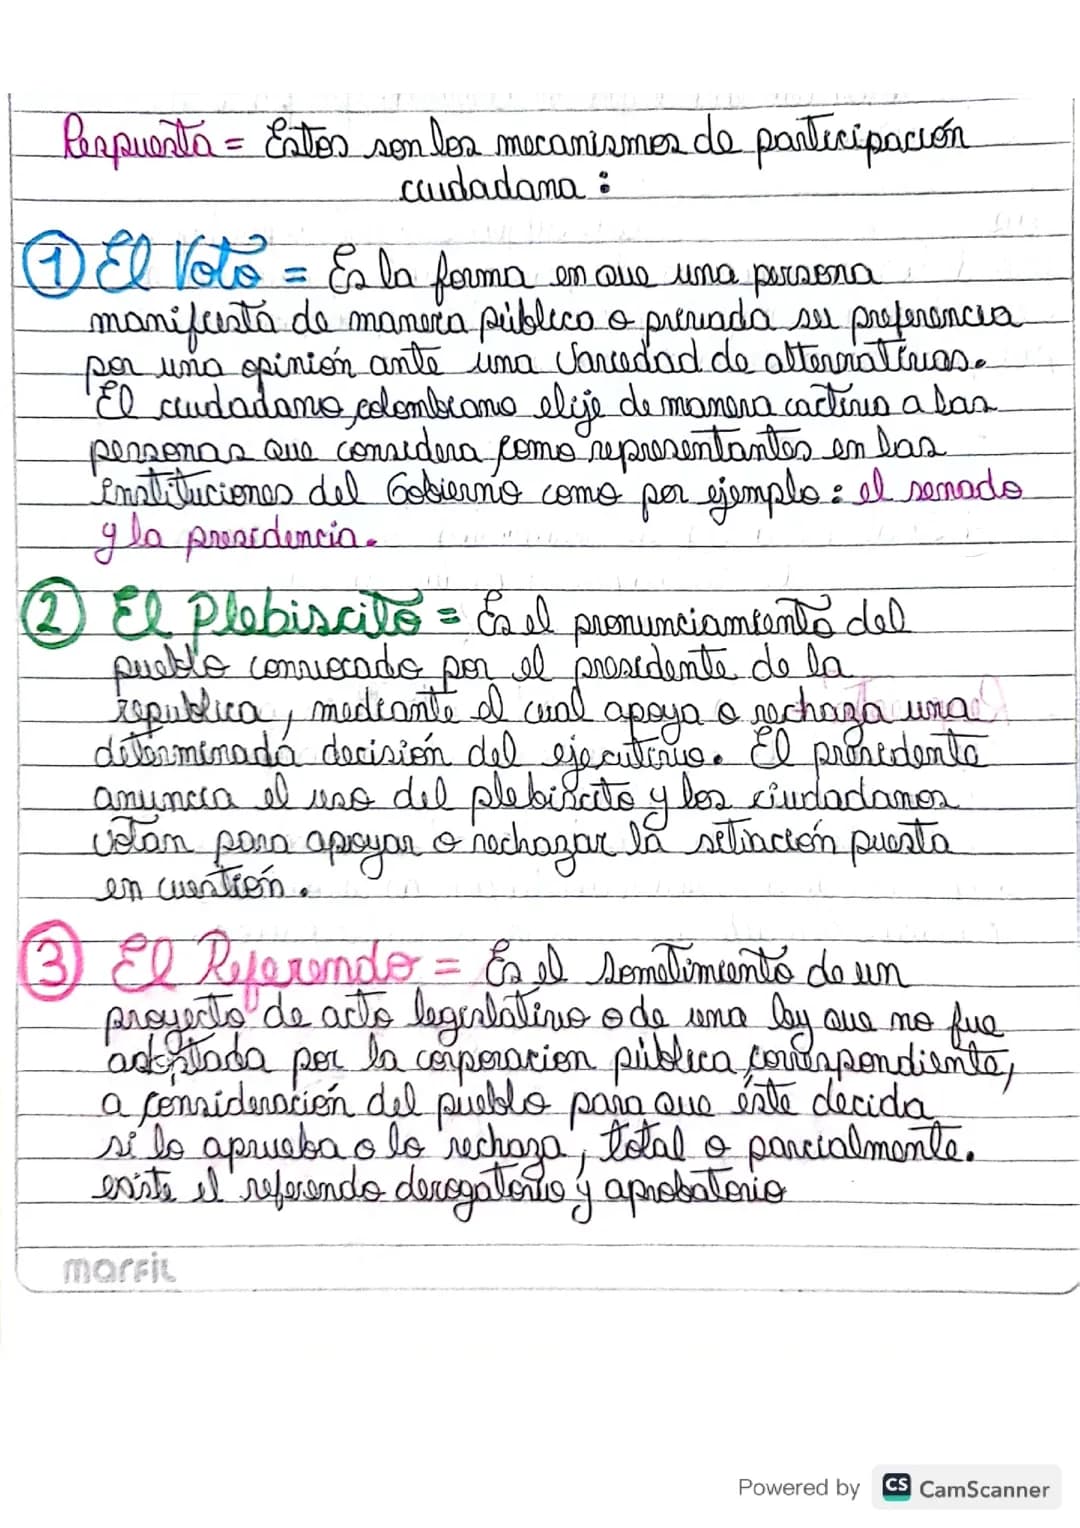 Respuesta = Estos son los mecanismos de participación
ciudadana :
① El Voto = Es la forma en que una persona
manifiesta de manera público o privada su preferencia
por una opinión ante una variedad de alternativas.
El ciudadano colombiano elije de manera cactiva a las
personas que considera como representantes en las
instituciones del Gobierno como por ejemplo : el senado
y la presidencia.
② El Plebiscito = Es el pronunciamiento del
pueblo convocado por el presidente de la
republica, mediante el cual apoya o rechaza una
determinada decisión del ejecutivo. El presidente
anuncia el uso del plebiscito y los ciudadanos
votan para apoyar o rechazar la sitiación puesta
en cuestión.
③ El Referendo = Es el sometimiento de un
proyecto de acto legislativo o de una ley que no fue
adoptada por la corporacion pública correspondiente,
a consideración del pueblo para que éste decida
si lo aprueba o lo rechaza, total o parcialmente.
existe el referendo derogatorio y aprobatorio
marfil
Powered by CS CamScanner